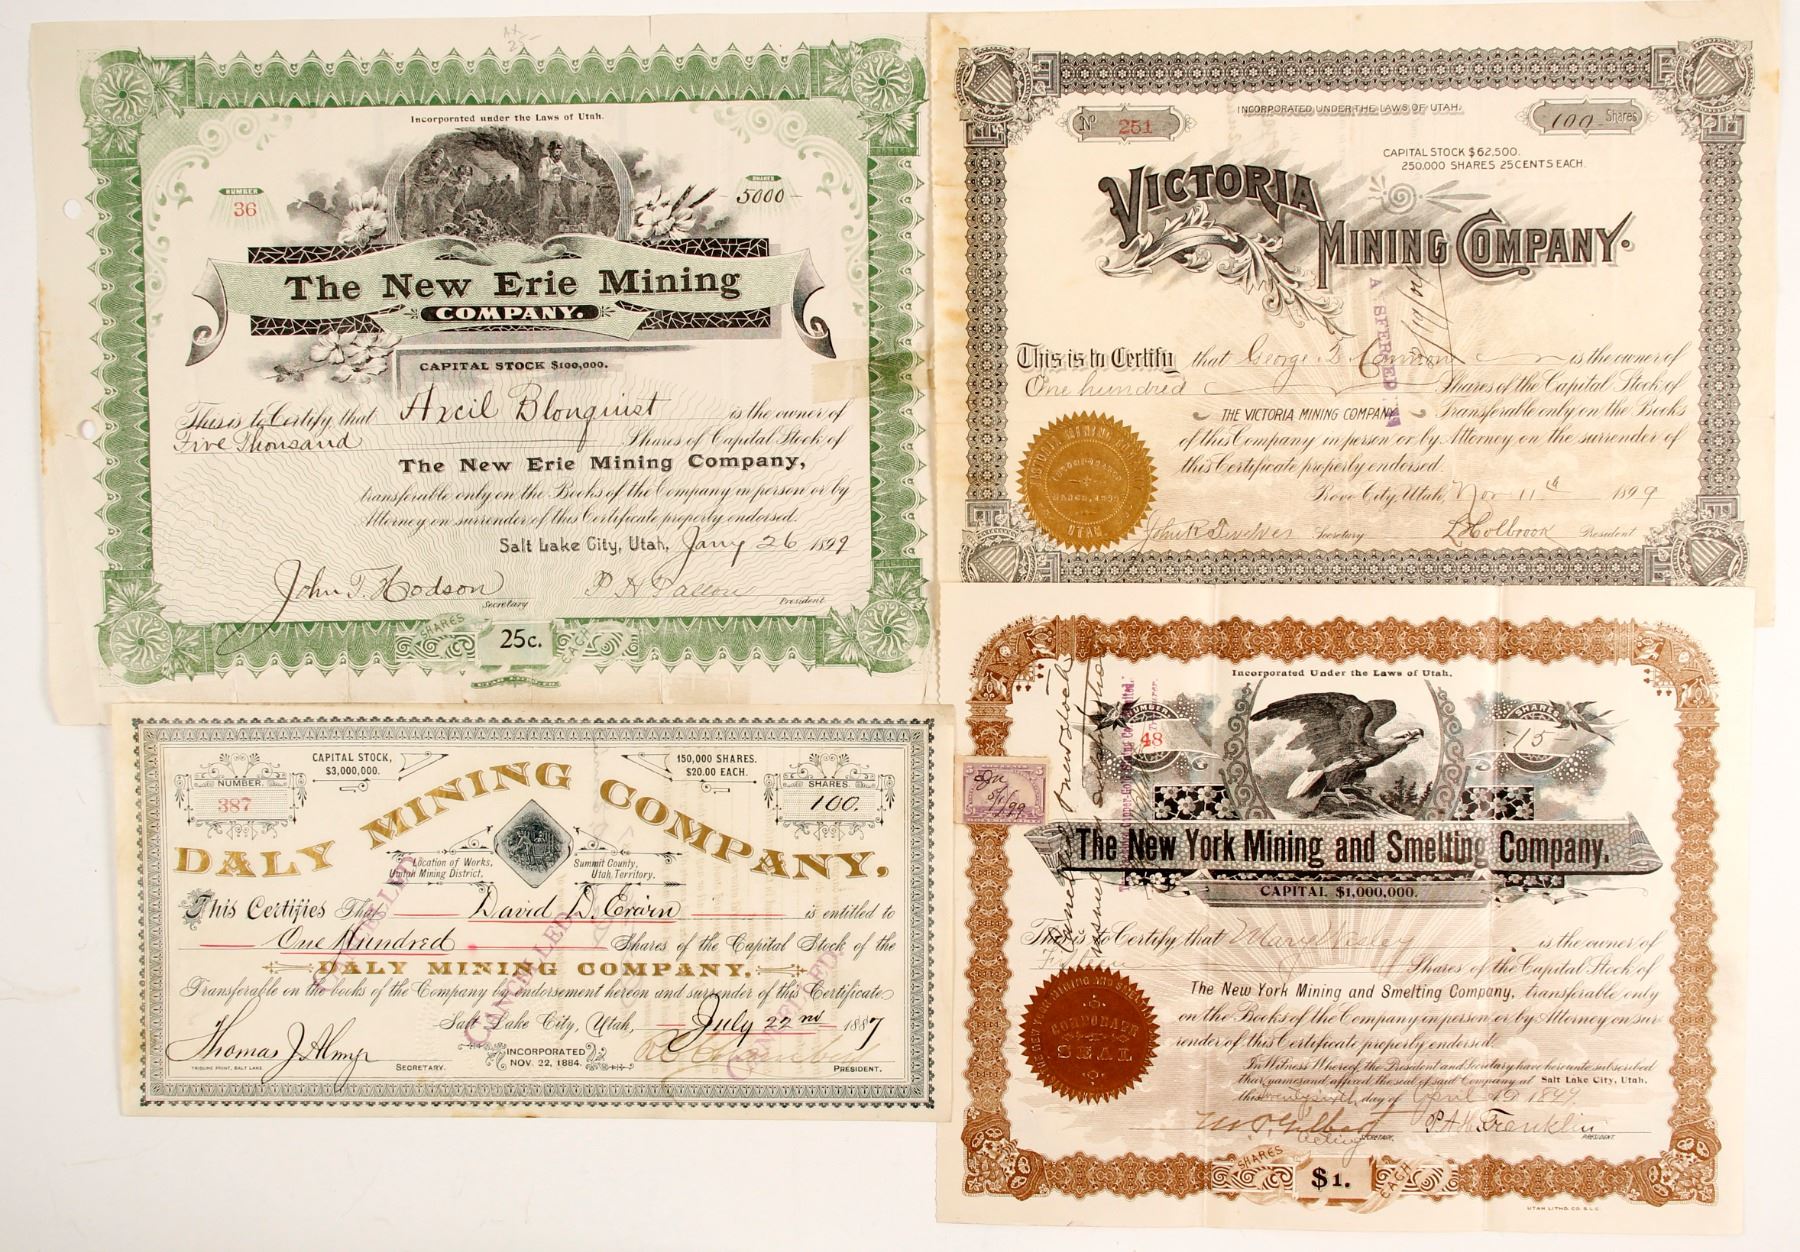 Incorporated under the Laws of Utah.
NUMBER
36
SHARES
5000
The New Erie Mining
COMPANY.
CAPITAL STOCK $100,000.
This is to Certify that Axcil Blonquist is the owner of
Five Thousand Shares of Capital Stock of
The New Erie Mining Company,
transferable only on the Books of the Company in person or by
Attorney on surrender of this Certificate properly endorsed.
Salt Lake City, Utah, Jany 26 1899
John T. Hodson
Secretary
President
SHARES
25c.
EACH
INCORPORATED UNDER THE LAWS OF UTAH.
No 251
100 Shares
CAPITAL STOCK $62,500.
250,000 SHARES 25 CENTS EACH.
VICTORIA
MINING COMPANY.
This is to Certify that George is the owner of
One hundred Shares of the Capital Stock of
THE VICTORIA MINING COMPANY Transferable only on the Books
of this Company in person or by Attorney on the surrender of
this Certificate properly endorsed.
Provo City, Utah, Nov 11th 1899
VICTORIA MINING COMPANY
UTAH
Secretary
L Holbrook President
CAPITAL STOCK,
$3,000,000.
150,000 SHARES.
$20.00 EACH.
NUMBER.
387
SHARES.
100.
DALY MINING COMPANY.
Location of Works,
Uintah Mining District.
Summit County,
Utah Territory.
This Certifies That David D. is entitled to
One Hundred Shares of the Capital Stock of the
DALY MINING COMPANY.
Transferable on the books of the Company by endorsement hereon and surrender of this Certificate
Salt Lake City, Utah, July 22nd 1887
CANCELLED
CANCELLED
CANCELLED
INCORPORATED
NOV. 22, 1884.
TRIBUNE PRINT, SALT LAKE.
SECRETARY.
PRESIDENT.
Incorporated Under the Laws of Utah.
NUMBER
48
SHARES
15
The New York Mining and Smelting Company.
CAPITAL $1,000,000.
This is to Certify that Mary Wesley is the owner of
Fifteen Shares of the Capital Stock of
The New York Mining and Smelting Company, transferable only
on the Books of the Company in person or by Attorney on sur-
render of this Certificate properly endorsed.
In Witness Whereof, the President and Secretary have hereunto subscribed
their names and affixed the seal of said Company at Salt Lake City, Utah.
this twenty sixth day of April A.D. 1899
CORPORATE
SEAL
Acting SECRETARY.
P A H Franklin
PRESIDENT
SHARES
$1.
EACH
UTAH LITHO. CO. S.L.C.